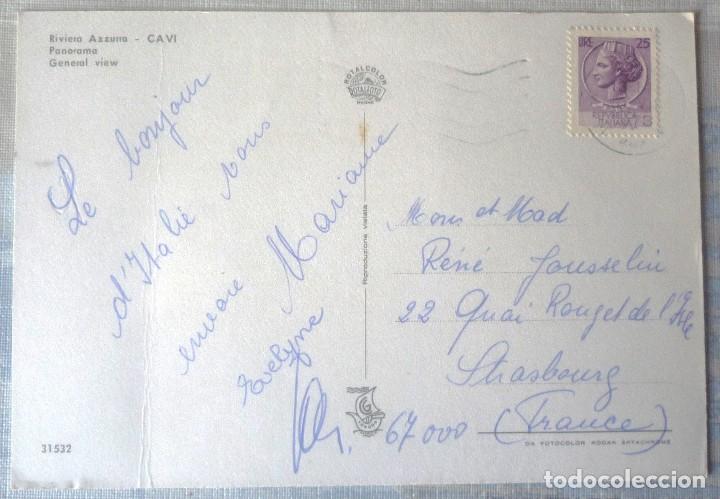 Riviera Azzurra - CAVI
Panorama
General view
ROTALCOLOR
ROTALFOTO
LIRE 25
REPUBBLICA
ITALIANA
Le bonjour
d'Italie vous
envoie Marianne
Evelyne
Riproduzione vietata
Mons et Mad
René Jousselin
22 Quai Rouget de l'Isle
Strasbourg
67000 (France)
31532
DA FOTOCOLOR KODAK EKTACHROME
todocoleccion.net